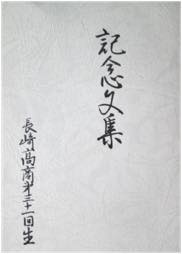 記念文集
長崎高商才三十一回生